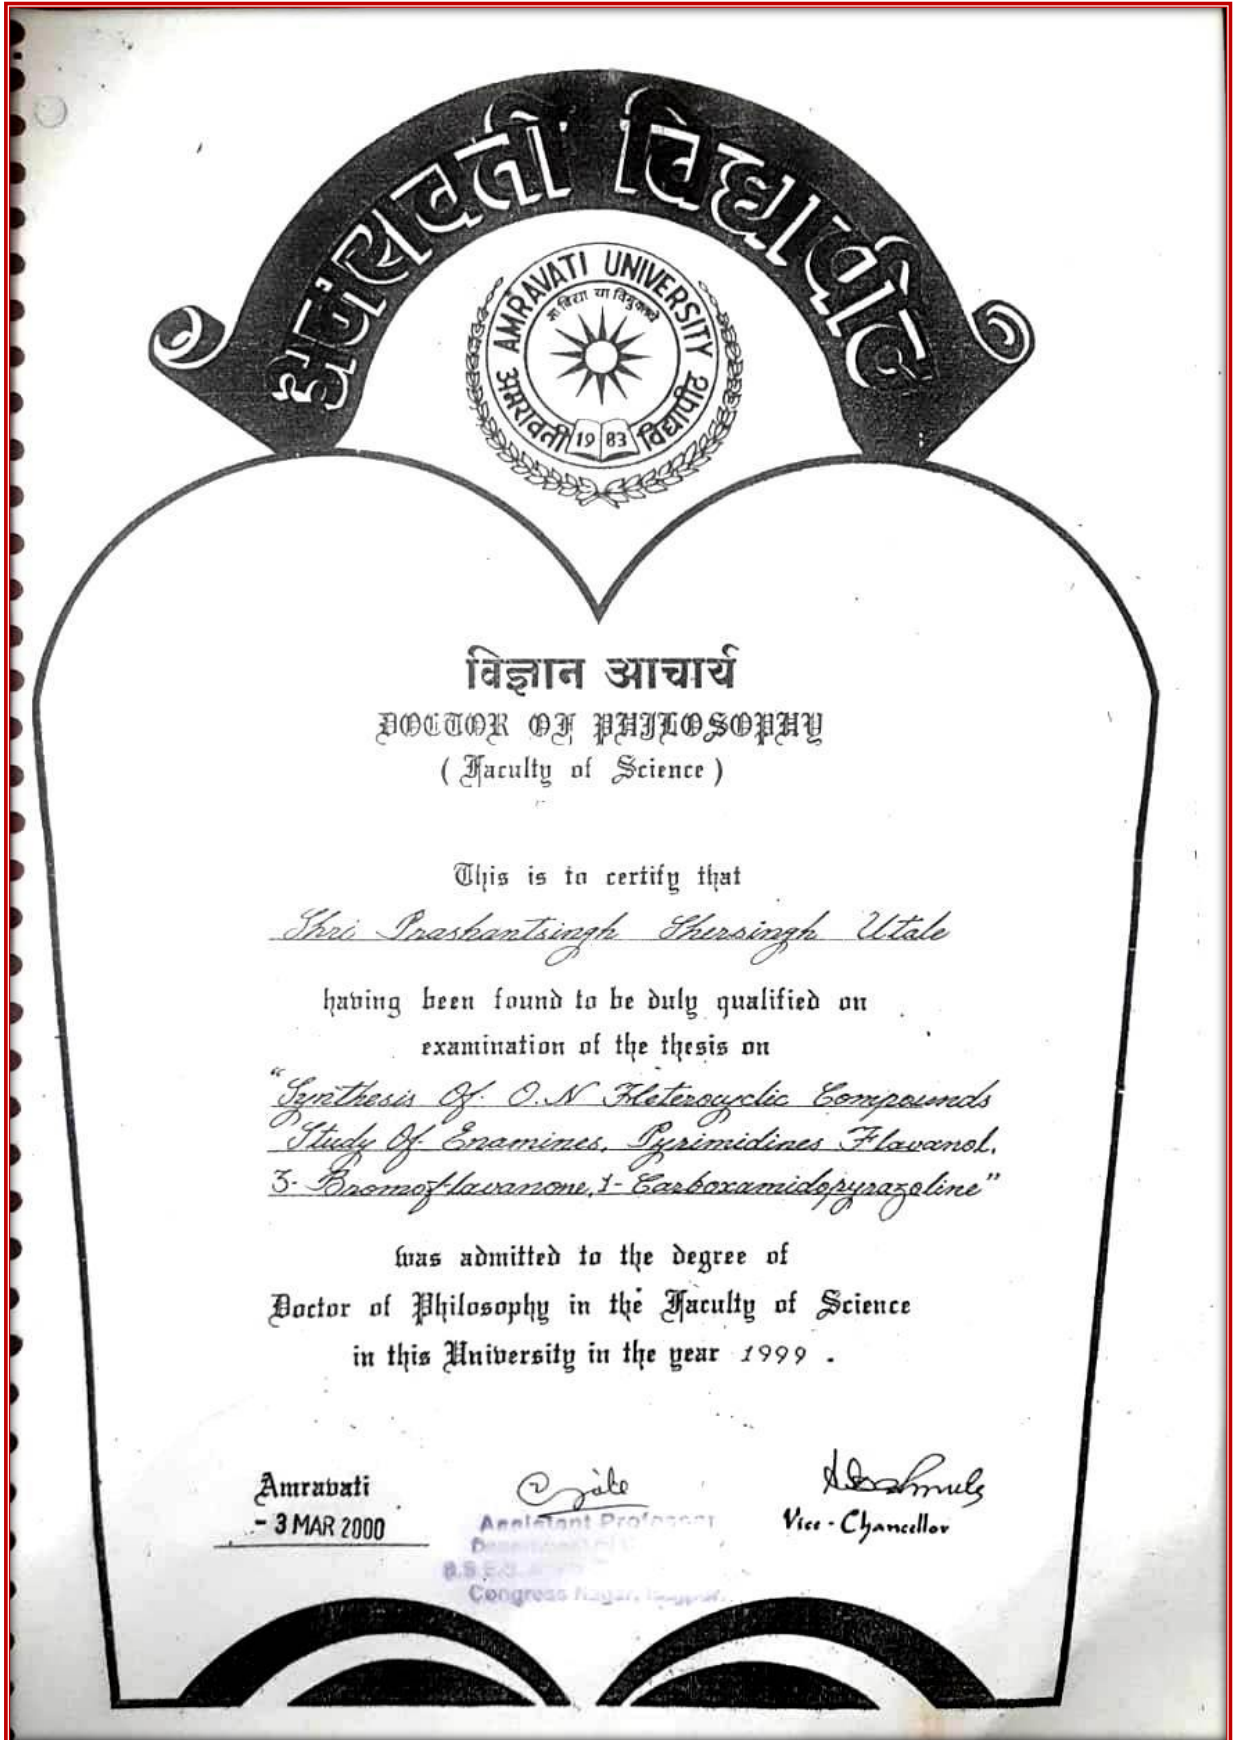 अमरावती विद्यापीठ
AMRAVATI UNIVERSITY
सा विद्या या विमुक्तये
अमरावती विद्यापीठ
19 83
विज्ञान आचार्य
DOCTOR OF PHILOSOPHY
( Faculty of Science )
This is to certify that
Shri Prashantsingh Shersingh Utale
having been found to be duly qualified on
examination of the thesis on
"Synthesis Of O.N Heterocyclic Compounds
Study Of Enamines, Pyrimidines Flavanol,
3- Bromoflavanone, 1- Carboxamidopyrazoline"
was admitted to the degree of
Doctor of Philosophy in the Faculty of Science
in this University in the year 1999 .
Amravati
- 3 MAR 2000
Vice - Chancellor
Assistant Professor
Congress Nagar, Nagpur.